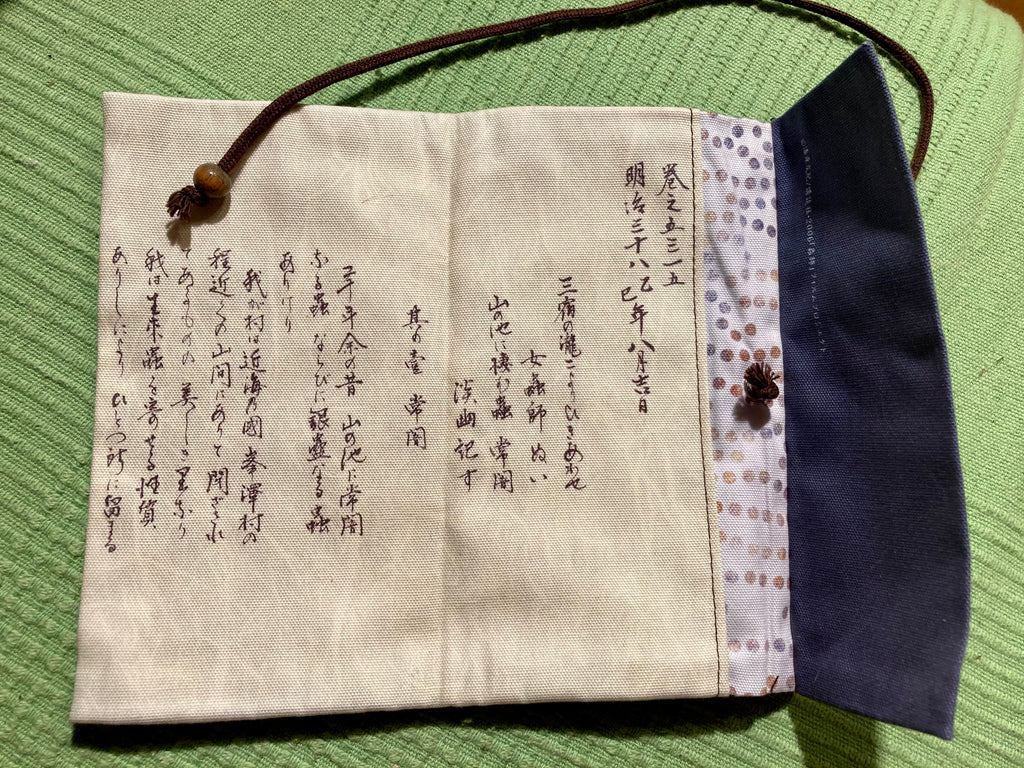 巻之五三一五
明治三十八乙巳年八月吉日
三宿の瀧こよりひきあわせ
女蟲師 ぬい
山の池に棲む蟲 常闇
淡幽記す
其の壹 常闇
千年余の昔 山の池に常闇
なる蟲 ならびに 銀蠱なる蟲
ありけり
我が村は近海の國 峯澤村の
程近くの山間にあって
てあるものの 美しき里なり
我は生来蟲を寄せる性質
ありしにより ひとつ所に留まる